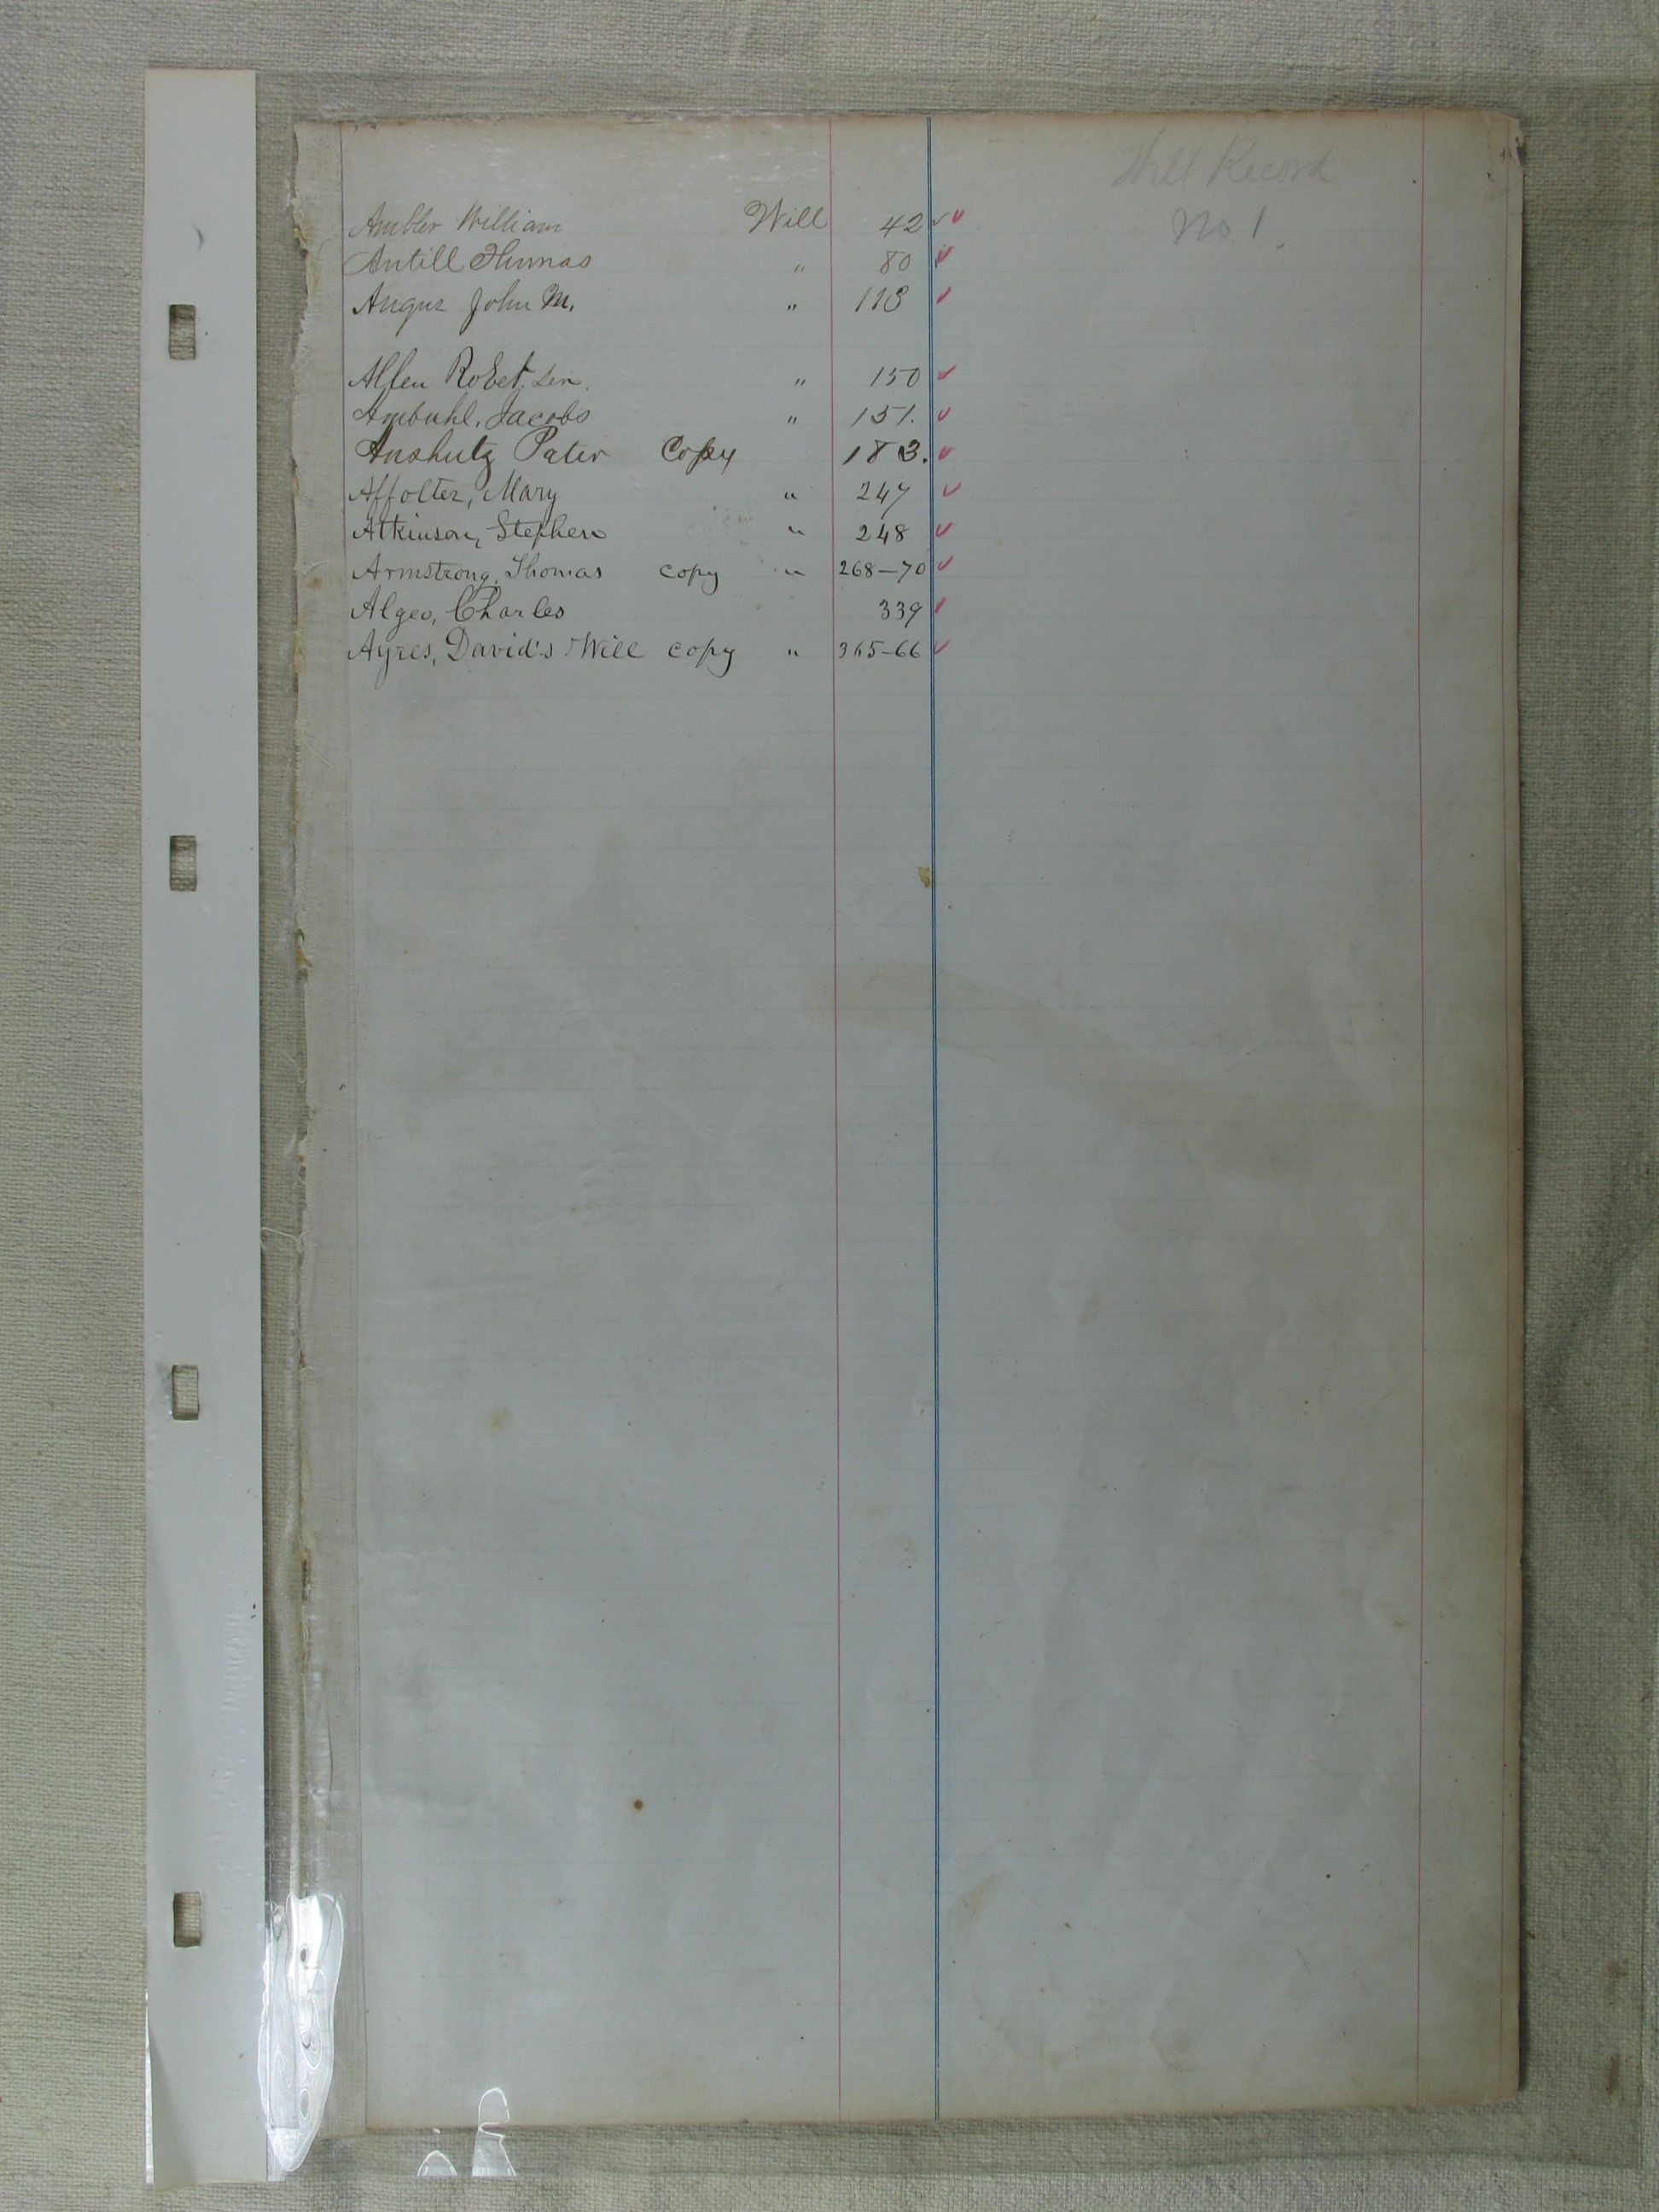 Will Record
No. 1.
Ambler William Will 42
Antill Thomas " 80
Angus John M. " 113
Allen Robet, Sen. " 150
Ambuhl, Jacobs " 151.
Anshutz Pater Copy 183.
Affolter, Mary " 247
Atkinson, Stephen " 248
Armstrong, Thomas copy " 268–70
Algeo, Charles 339
Ayres, David's Will copy " 365–66